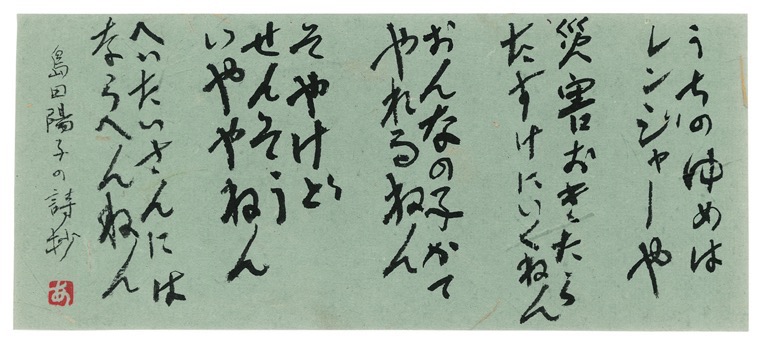 うちのゆめは
レンジャーや
災害おきたら
たすけにいくねん
おんなの子かて
やれるねん
そやけど
せんそう
いややねん
へいたいさんには
ならへんねん
島田陽子の詩抄
あ